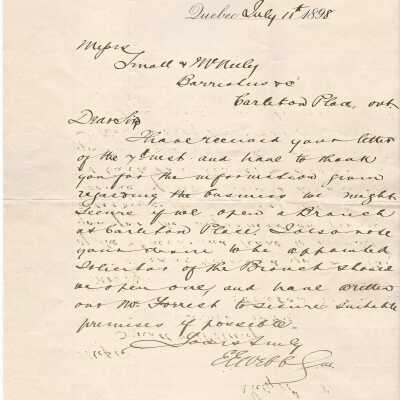 Quebec July 11th 1898
Messrs
Small & McNeely
Barristers &c
Carleton Place, Ont.
Dear Sirs
I have received your letter
of the 7th inst and have to thank
you for the information given
regarding the business we might
secure if we open a Branch
at Carleton Place, I also note
your desire to be appointed
Solicitor of the Branch should
we open one, and have written
our Mr Forrest to secure suitable
premises if possible.
Yours truly
E E Webb